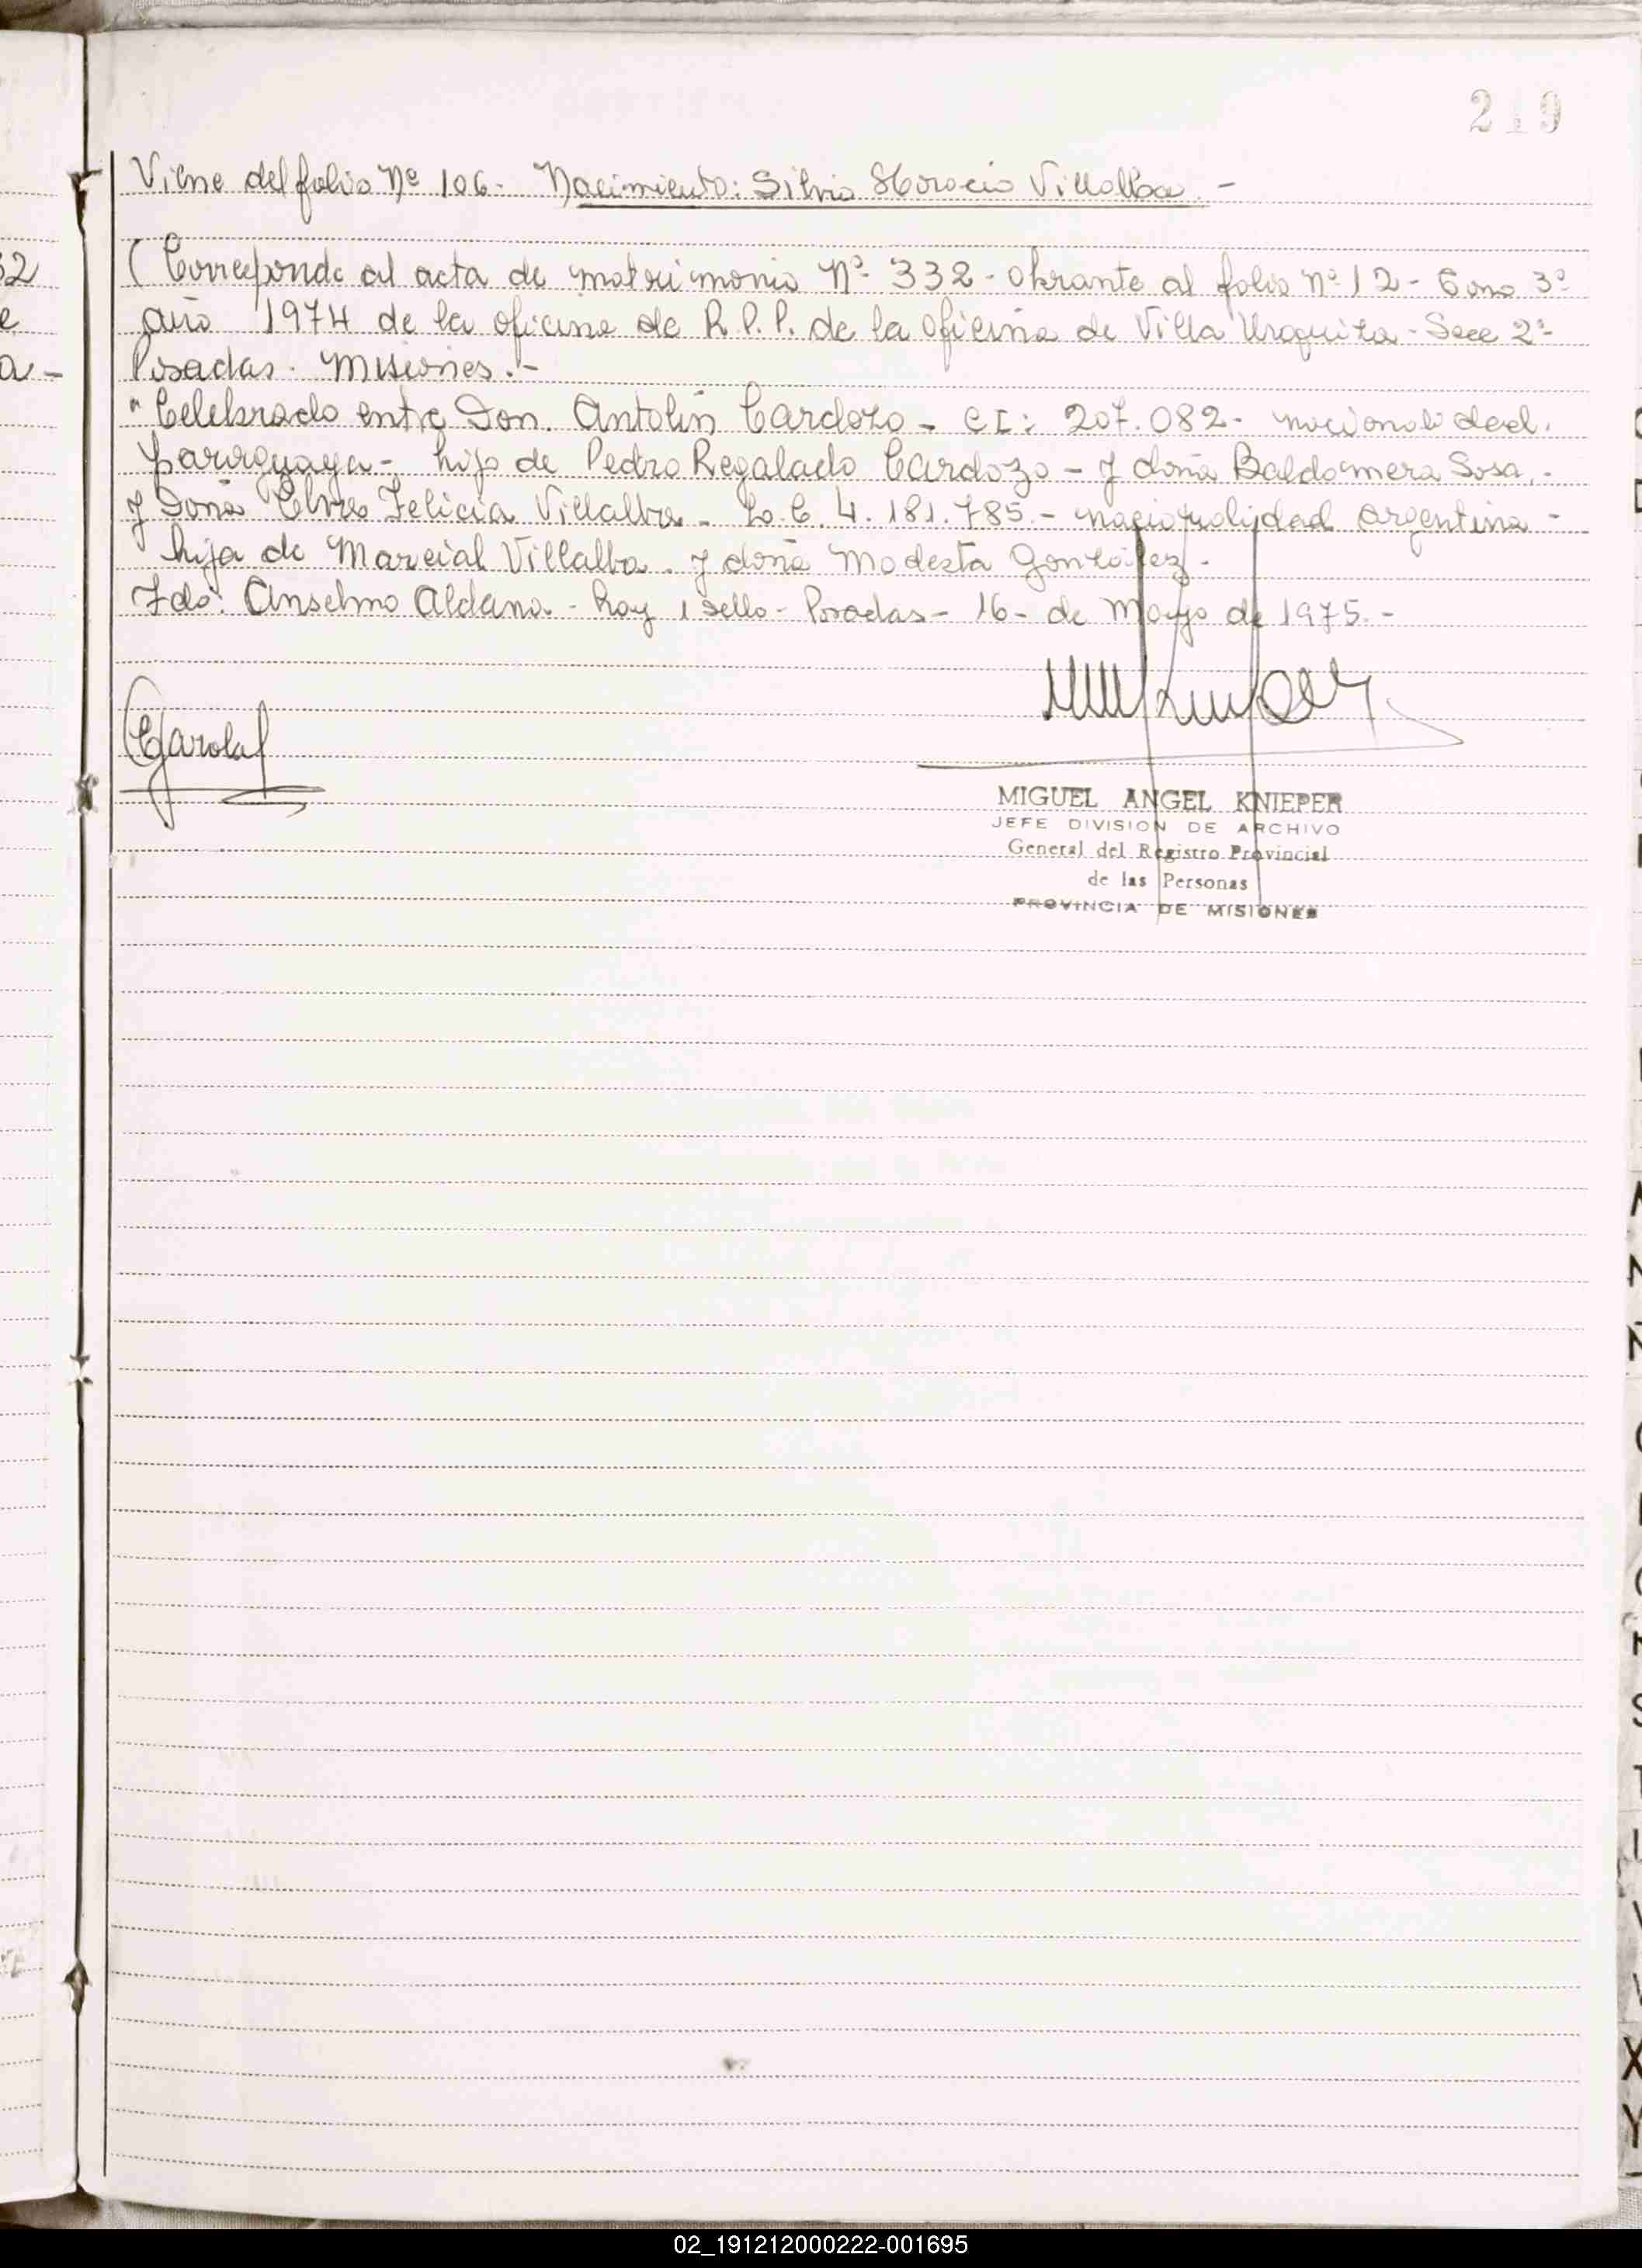 219
Viene del folio Nº 106- Nacimiento: Silvio Horacio Villalba.-
(Corresponde al acta de matrimonio Nº 332- obrante al folio nº 12- Tomo 3º
año 1974 de la oficina de R.P.P. de la oficina de Villa Urquiza- Secc 2ª
Posadas. Misiones.-
"Celebrado entre Don. Antolín Cardozo- CI: 207.082- nacionalidad.
paraguaya- hijo de Pedro Regalado Cardozo- y doña Baldomera Sosa.-
y Doña Felicia Villalba- L.C. 4.181.785- nacionalidad argentina-
hija de Marcial Villalba. y doña Modesta González.
Fdo: Anselmo Aldana- hay 1 sello- Posadas- 16- de Mayo de 1975.-
MIGUEL ANGEL KNIEPER
JEFE DIVISION DE ARCHIVO
General del Registro Provincial
de las Personas
PROVINCIA DE MISIONES
02_191212000222-001695